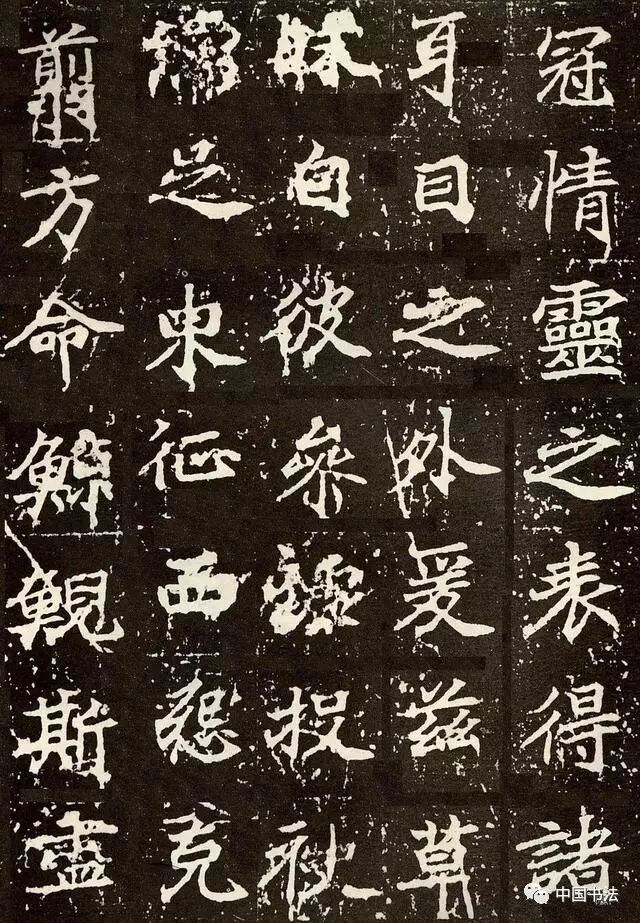 冠情靈之表得諸
耳目之外爰茲草
昧自彼參墟投袂
足東征西怨克
翦方命鯨鯢斯盡
中国书法